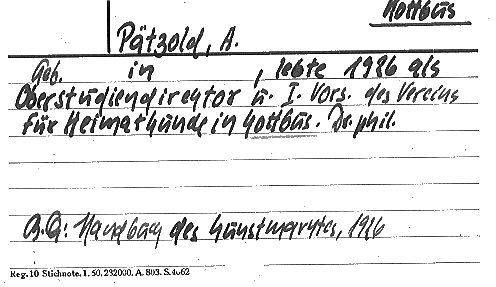 Kottbus
Pätzold, A.
Geb. in , lebte 1926 als
Oberstudiendirektor u. I. Vors. des Vereins
für Heimatkunde in Kottbus. Dr. phil.
B.Q: Handbuch des Kunstmarktes, 1926
Reg. 10 Stichnote. 1. 50. 232000. A. 803. S. 4062